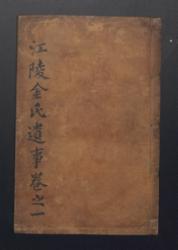 江陵金氏遺事卷之一